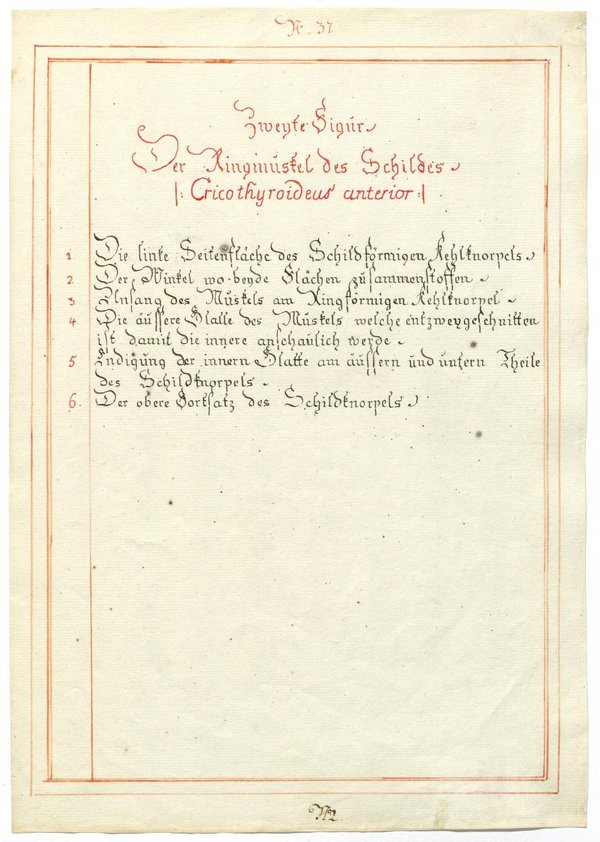 N. 37
Zweyte Figur
Der Ringmuskel des Schildes
|: Cricothyroideus anterior :|
1. Die linke Seitenfläche des Schildförmigen Kehlknorpels.
2 Der Winkel wo beyde Flächen zusammenstoffen.
3 Anfang des Muskels am Ringförmigen Kehlknorpel.
4 Die äussere Platte des Muskels welche entzweygeschnitten
ist damit die innere anschaulich werde.
5 Endigung der innern Platte am äussern und untern Theile
des Schildknorpels.
6. Der obere Fortsatz des Schildknorpels.